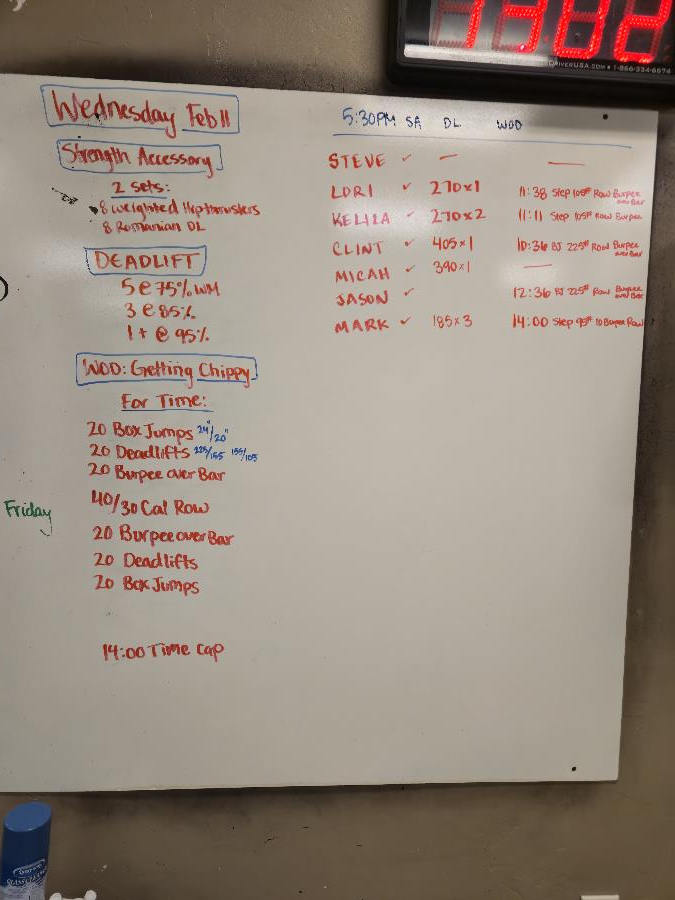 DRIVERUSA.COM • 1-866-334-6674
Wednesday Feb 11
Strength Accessory
2 Sets:
8 weighted Hip thrusters
8 Romanian DL
DEADLIFT
5 @ 75% WM
3 @ 85%
1+ @ 95%
WOD: Getting Chippy
For Time:
20 Box Jumps 24"/20"
20 Deadlifts 225/155 155/105
20 Burpee over Bar
40/30 Cal Row
20 Burpee over Bar
20 Deadlifts
20 Box Jumps
14:00 Time Cap
Friday
5:30PM SA DL WOD
STEVE ✓ — —
LORI ✓ 270x1 11:38 Step 105# Row Burpee over Bar
KELILA ✓ 270x2 11:11 Step 105# Row Burpee
CLINT ✓ 405x1 10:36 BJ 225# Row Burpee over Bar
MICAH ✓ 390x1 —
JASON ✓ 12:36 BJ 225# Row Burpee over Bar
MARK ✓ 185x3 14:00 Step 95# 10 Burpee Row